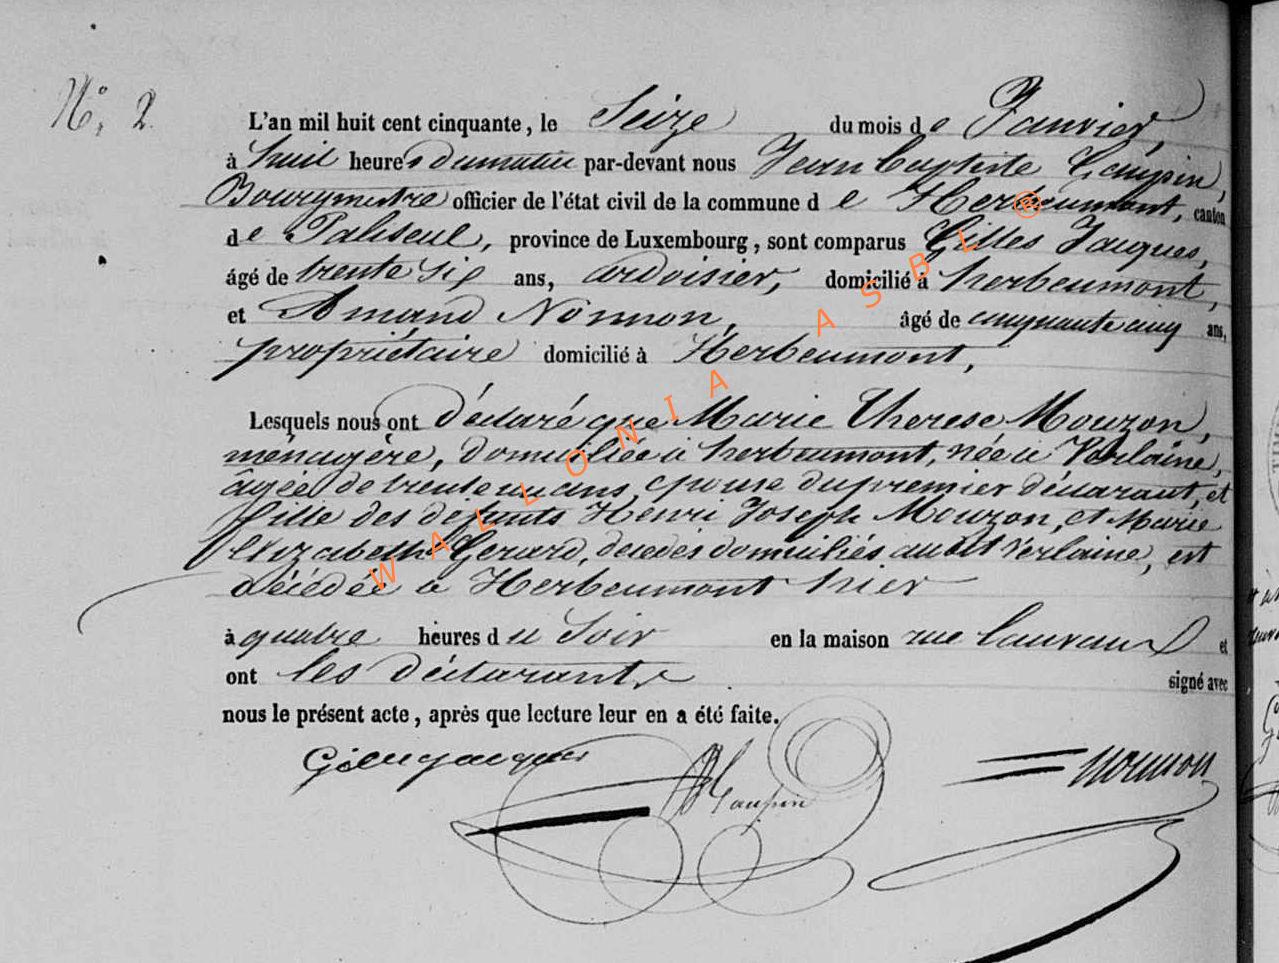 N° 2
L'an mil huit cent cinquante, le Seize du mois de Janvier,
à huit heures du matin par-devant nous Jean Baptiste Gaupin,
Bourgmestre officier de l'état civil de la commune de Herbeumont, canton
de Paliseul, province de Luxembourg, sont comparus Gilles Jacques,
âgé de trente six ans, ardoisier, domicilié à herbeumont,
et Amand Nonnon, âgé de cinquante cinq ans,
propriétaire domicilié à Herbeumont,
Lesquels nous ont déclaré que Marie Therese Mouzon,
ménagère, domiciliée à herbeumont, née à Verlaine,
âgée de trente un ans, epouse du premier déclarant, et
fille des defunts Henri Joseph Mouzon, et Marie
Elizabethe Gerard, décédés domiciliés audit Verlaine, est
décédée à Herbeumont hier
à quatre heures du Soir en la maison rue Lauvaux et
ont les déclarants signé avec
nous le présent acte, après que lecture leur en a été faite.
Gilles jacques
Gaupin
Nonnon
WALLONIA ASBL ®